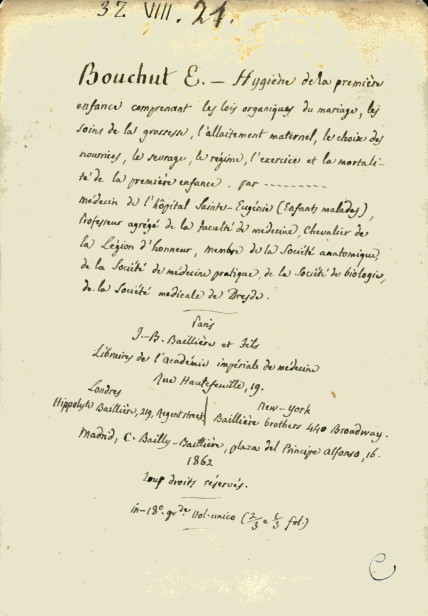 3Z. VIII. 21.
Bouchut E. — Hygiène de la première
enfance comprenant les lois organiques du mariage, les
soins de la grossesse, l'allaitement maternel, le choix des
nourrices, le sevrage, le régime, l'exercice et la mortali-
té de la première enfance. par ---------
médecin de l'hôpital Sainte-Eugénie (Enfants malades),
Professeur agrégé de la faculté de medecine, Chevalier de
la Légion d'honneur, membre de la Société anatomique,
de la Société de médecine pratique, de la Société de biologie,
de la Société médicale de Dresde.
Paris
J.-B. Baillière et Fils
Libraires de l'Académie impériale de médecine
Rue Hautefeuille, 19.
Londres
Hippolyte Baillière, 219, Regent street
New-York
Baillière brothers 440 Broadway.
Madrid, C. Bailly-Baillière, plaza del Principe Alfonso, 16.
1862
Tous droits réservés.
in-18° gr.de Vol. unico (2/3 e 1/3 fol.)
C